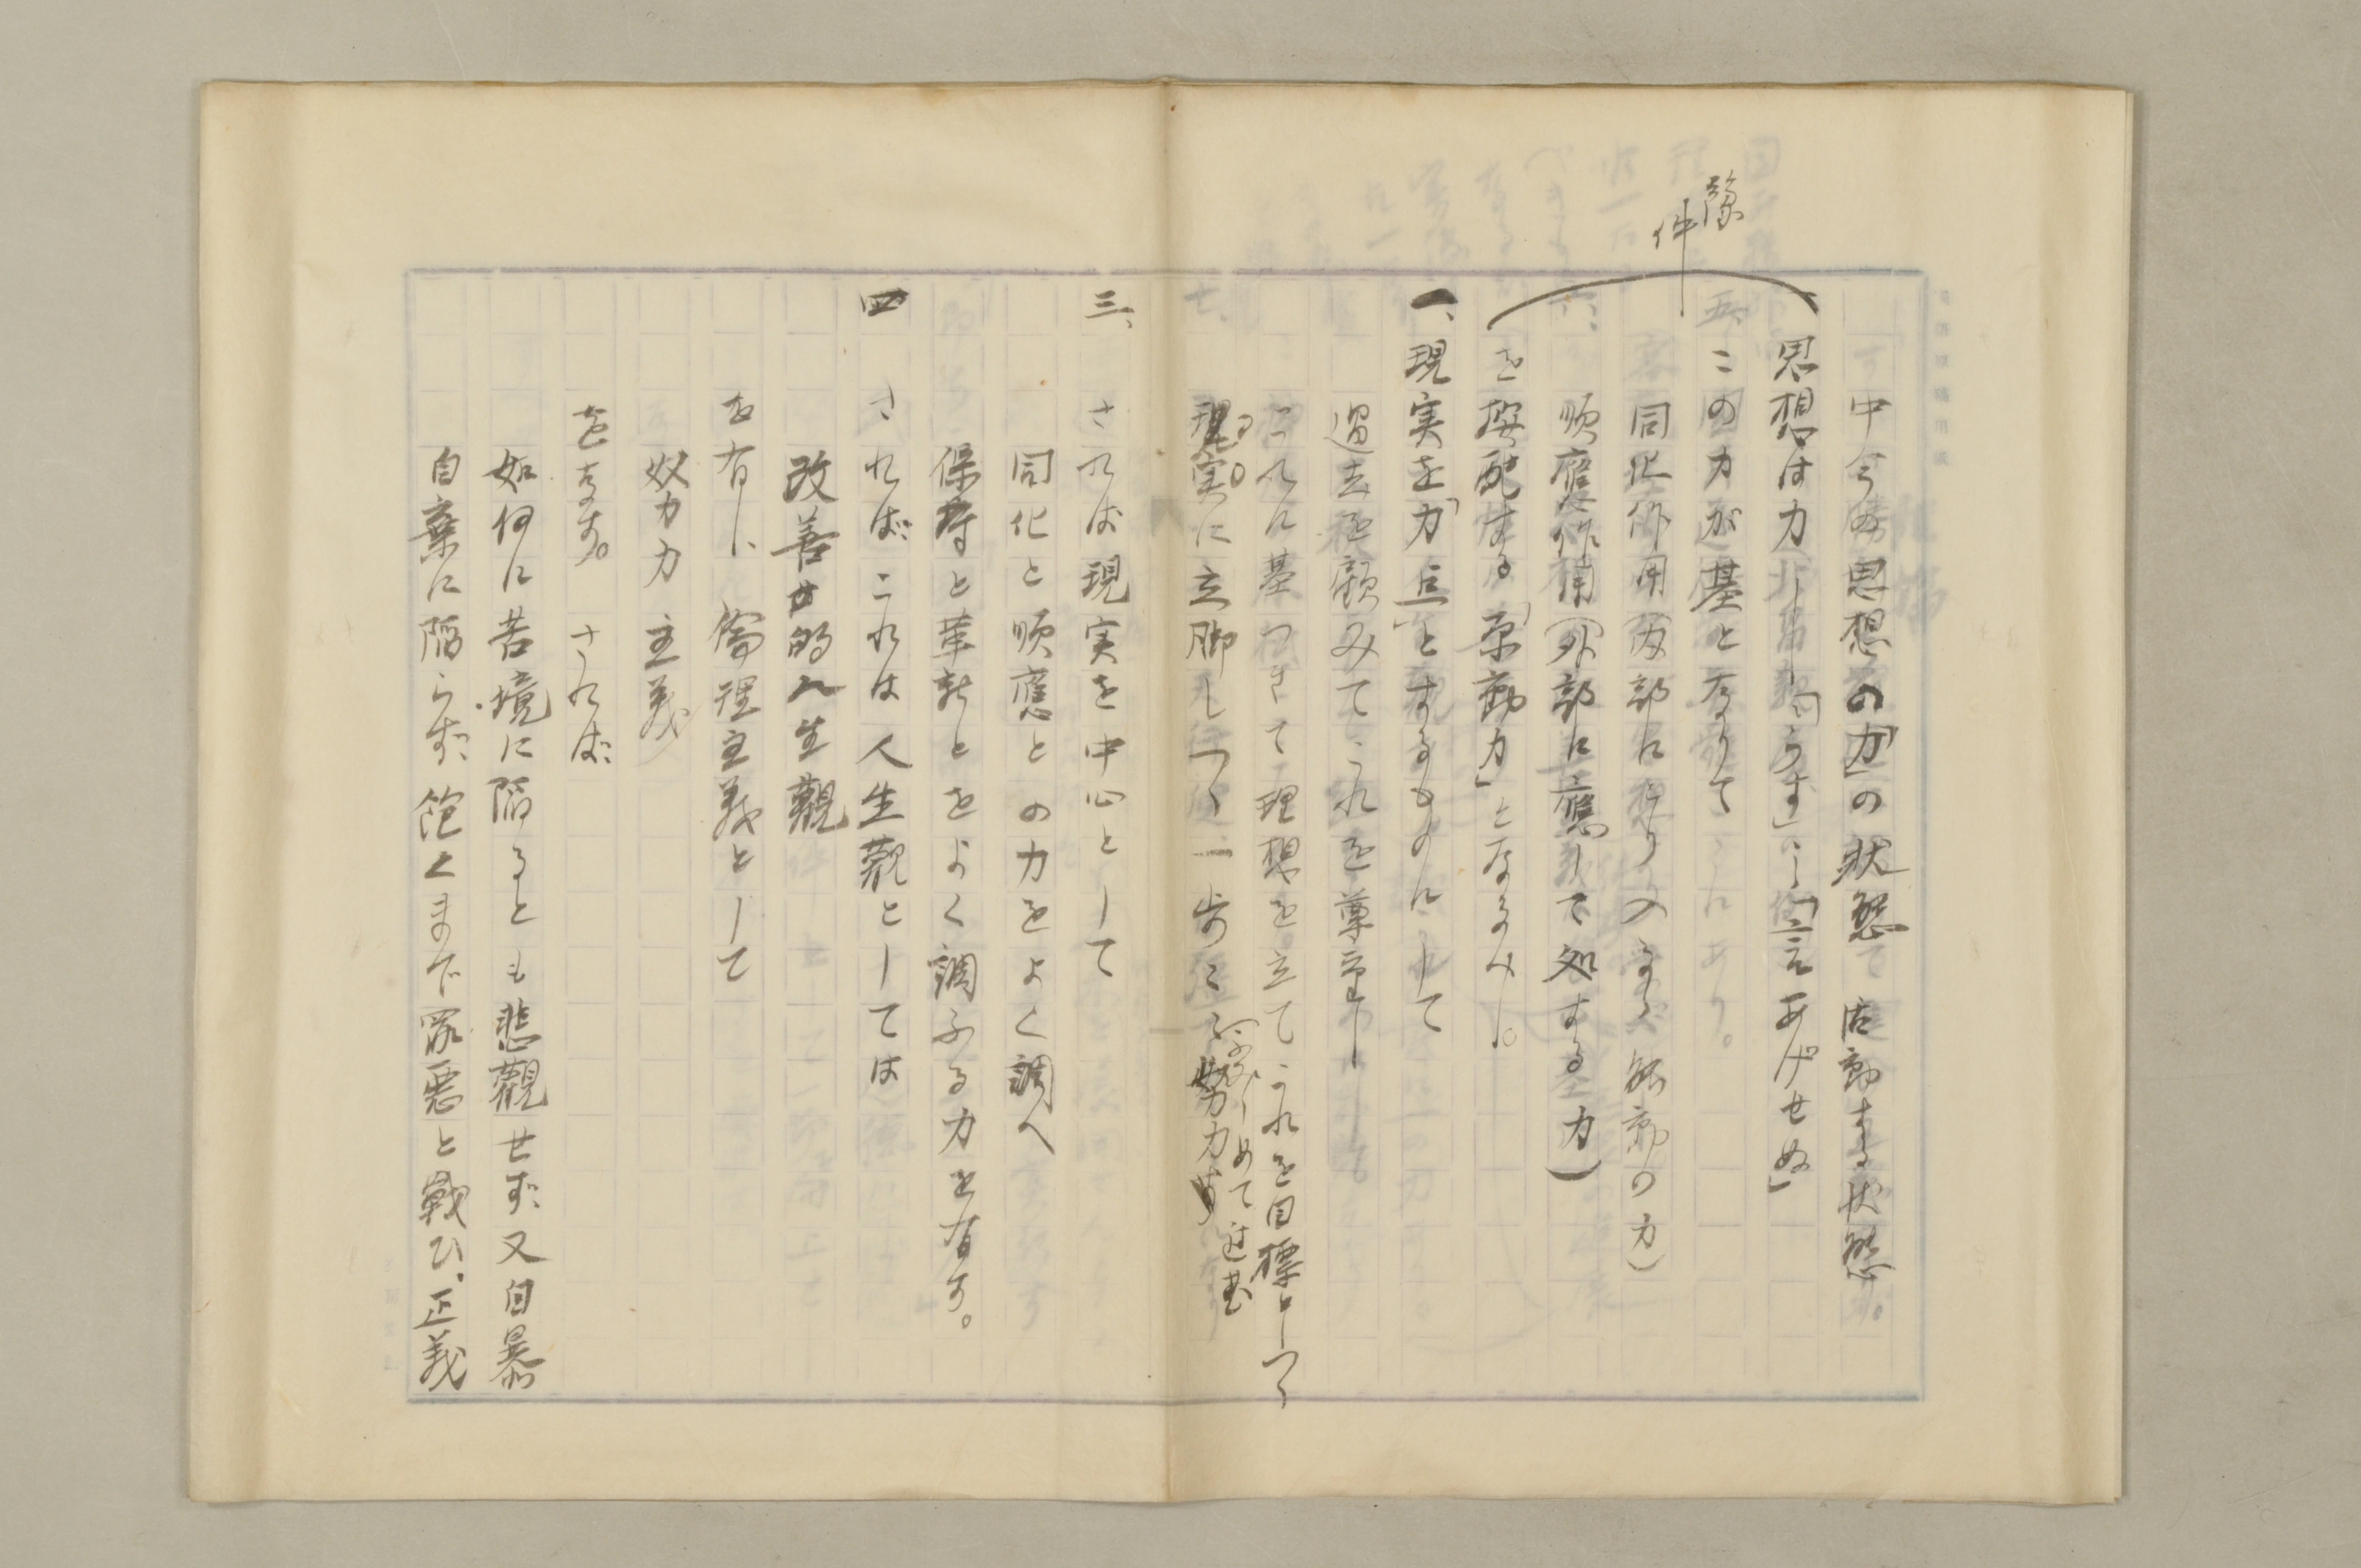 豫件
中今の思想の「力」の状態 活動する状態。
思想は力 「らす」「言あげせぬ」
このカが基となりて
同化作用(内部にとり入るゝ 活動の力)
順應作用(外部に應じて処する力)
を按配する「原動力」となるのみ。
一、現実を「力点」とするものにして
過去を顧みてこれを尊重し
これに基づきて理想を立てこれを目標としつゝ
現実に立脚しつゝ一歩々々努力す
ふみしめて進む
三、されば現実を中心として
同化と順應との力をよく調へ
保存と革新とをよく調ふる力を有す。
四 さればこれは人生觀としては
改善的人生觀
を有し、倫理主義として
努力主義
をなす。されば
如何に苦境に陥るとも悲觀せず又自暴
自棄に陥らず飽くまで罪惡と戰ひ、正義